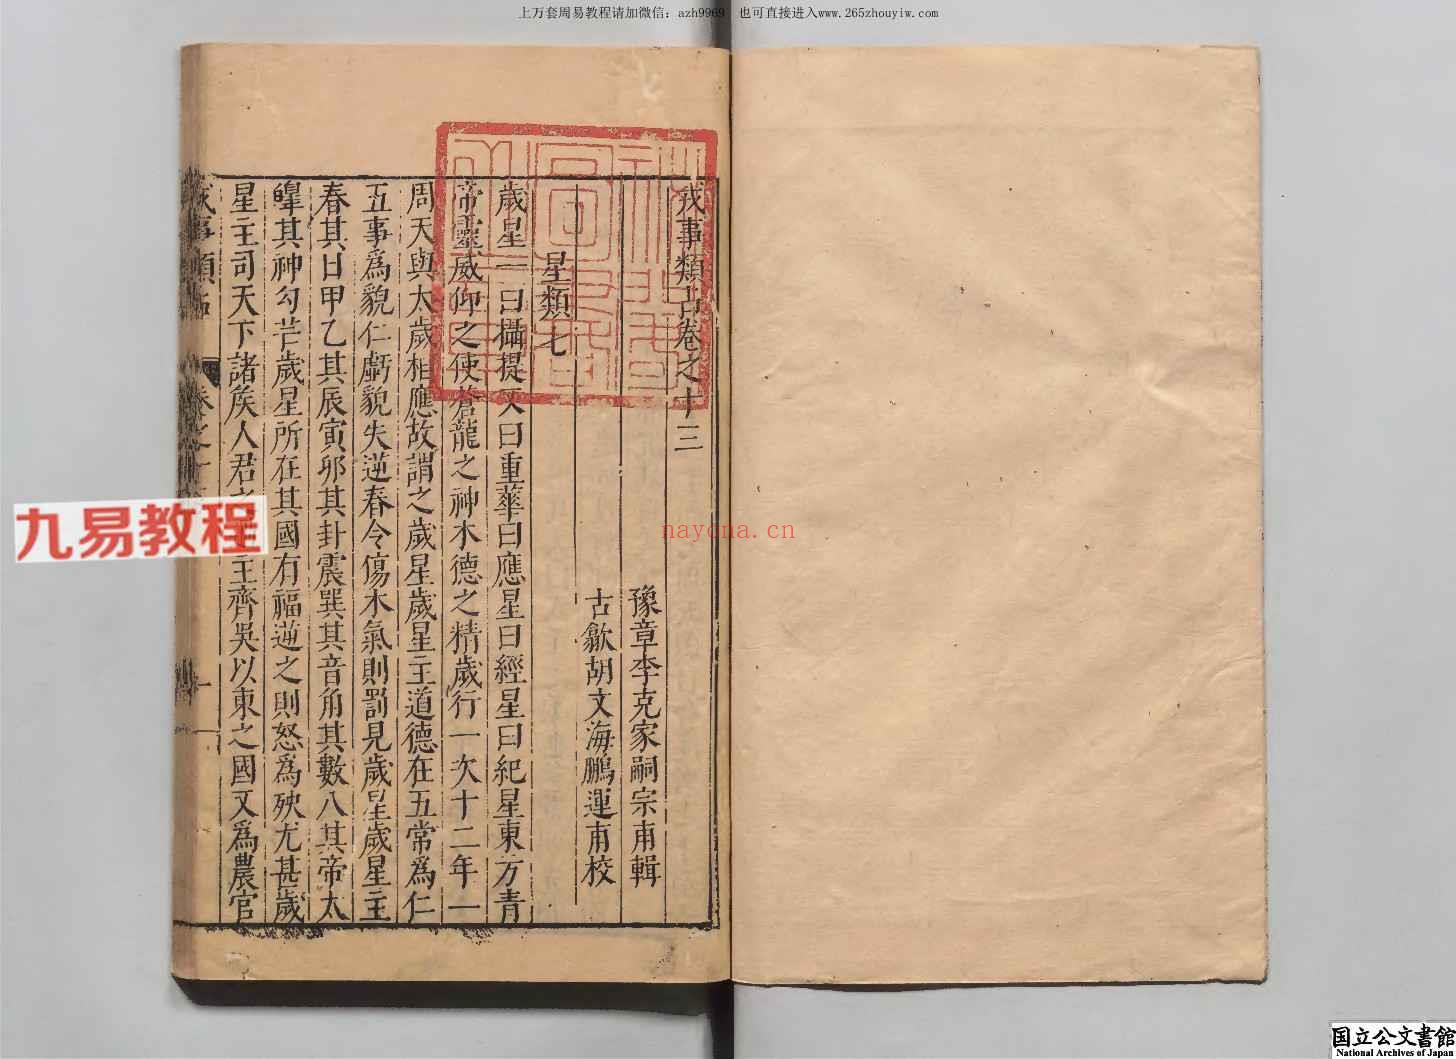 上万套周易教程请加微信：azh9969 也可直接进入www.265zhouyiw.com
戎事類占卷之十三
豫章李克家嗣宗甫輯
古歙胡文海鵬運甫校
星類七
歲星一曰攝提又曰重華曰應星曰經星曰紀星東方青
帝靈威仰之使蒼龍之神木德之精歲行一次十二年一
周天與太歲相應故謂之歲星歲星主道德在五常爲仁
五事爲貌仁虧貌失逆春令傷木氣則罰見歲星歲星主
春其日甲乙其辰寅卯其卦震巽其音角其數八其帝太
皡其神勾芒歲星所在其國有福逆之則怒爲殃尤甚歲
星主司天下諸矦人君之 主齊吳以東之國又爲農官
戎事類占
卷之十
一
九易教程
nayona.cn
国立公文書館
National Archives of Japan